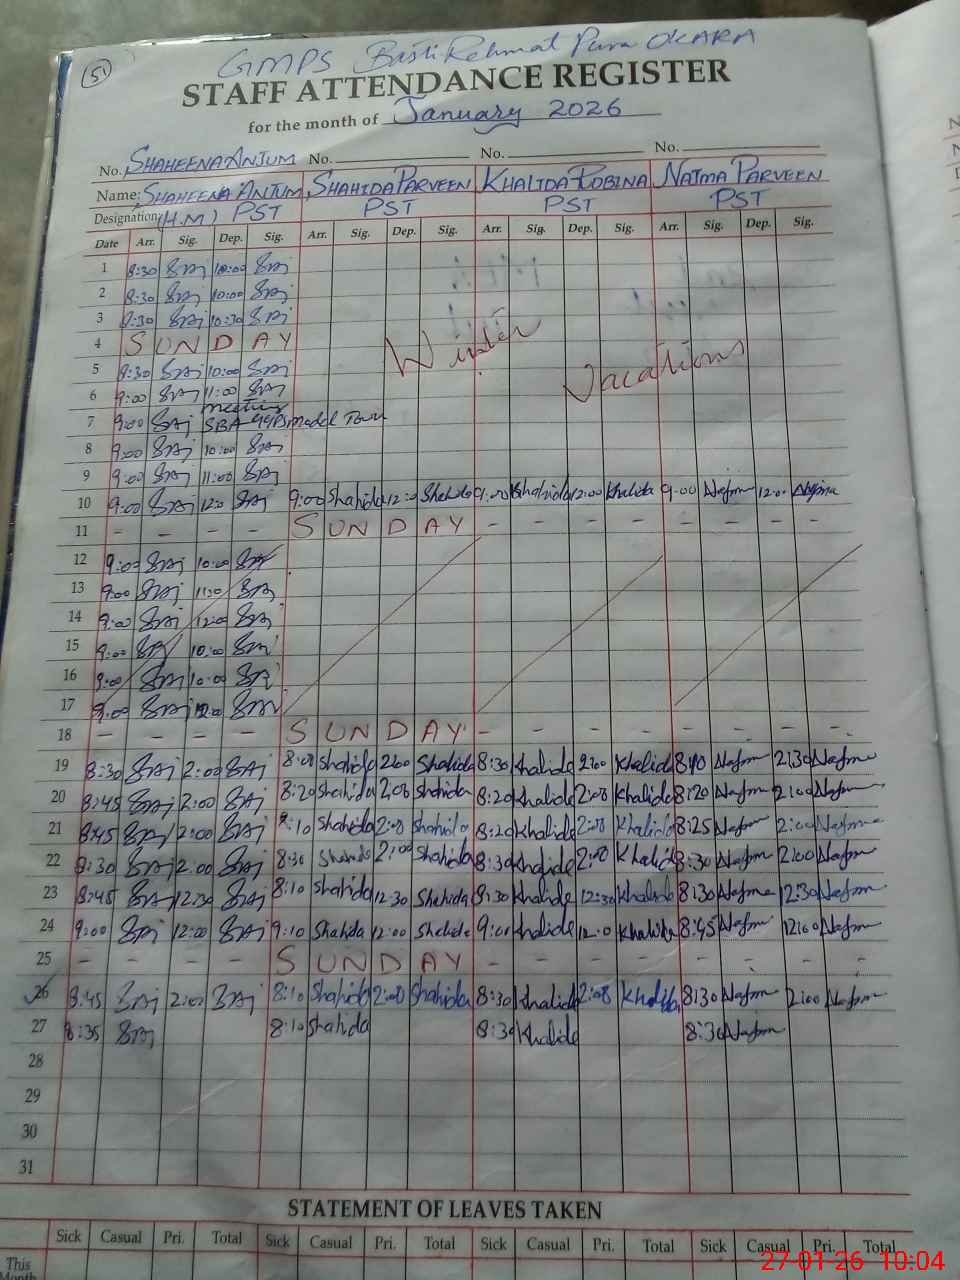 51
GMPS Basti Rehmat Pura OKARA
STAFF ATTENDANCE REGISTER
for the month of January 2026
No. SHAHEENA ANJUM No. No. No.
Name: SHAHEENA ANJUM SHAHIDA PARVEEN KHALIDA ROBINA NAJMA PARVEEN
Designation (H.M) PST PST PST PST
Date Arr. Sig. Dep. Sig. Arr. Sig. Dep. Sig. Arr. Sig. Dep. Sig. Arr. Sig. Dep. Sig.
1 8:30 10:00
2 8:30 10:00
3 9:30 10:30
4 SUNDAY
Winter Vacations
5 8:30 10:00
6 9:00 11:00
meeting
7 9:00 SBA Model Town
8 9:00 10:00
9 9:00 11:00
10 9:00 12:0 9:00 Shahida 12:0 Shahida 9:00 Khalida 12:00 Khalida 9:00 Najma 12:0 Najma
11 - - - - SUNDAY - - - - - - - -
12 9:00 10:00
13 9:00 11:0
14 9:00 12:00
15 9:00 10:00
16 9:00 10:00
17 9:00
18 - - - - SUNDAY - - - - - - - -
19 8:30 2:00 8:00 Shahida 2:00 Shahida 8:30 Khalida 2:00 Khalida 8:40 Najma 2:30 Najma
20 8:45 2:00 8:20 Shahida 2:00 Shahida 8:20 Khalida 2:00 Khalida 8:20 Najma 2:00 Najma
21 8:45 2:00 8:10 Shahida 2:00 Shahida 8:20 Khalida 2:00 Khalida 8:25 Najma 2:00 Najma
22 8:30 2:00 8:30 Shahida 2:00 Shahida 8:30 Khalida 2:00 Khalida 8:30 Najma 2:00 Najma
23 8:45 12:30 8:10 Shahida 12:30 Shahida 8:30 Khalida 12:30 Khalida 8:30 Najma 12:30 Najma
24 9:00 12:00 9:10 Shahida 12:00 Shahida 9:00 Khalida 12:0 Khalida 8:45 Najma 12:00 Najma
25 - - - - SUNDAY - - - - - - - -
26 8:45 2:00 8:10 Shahida 2:00 Shahida 8:30 Khalida 2:00 Khalida 8:30 Najma 2:00 Najma
27 8:35 8:10 Shahida 8:30 Khalida 8:30 Najma
28
29
30
31
STATEMENT OF LEAVES TAKEN
Sick Casual Pri. Total Sick Casual Pri. Total Sick Casual Pri. Total Sick Casual Pri. Total
This
Month
27-01-26 10:04